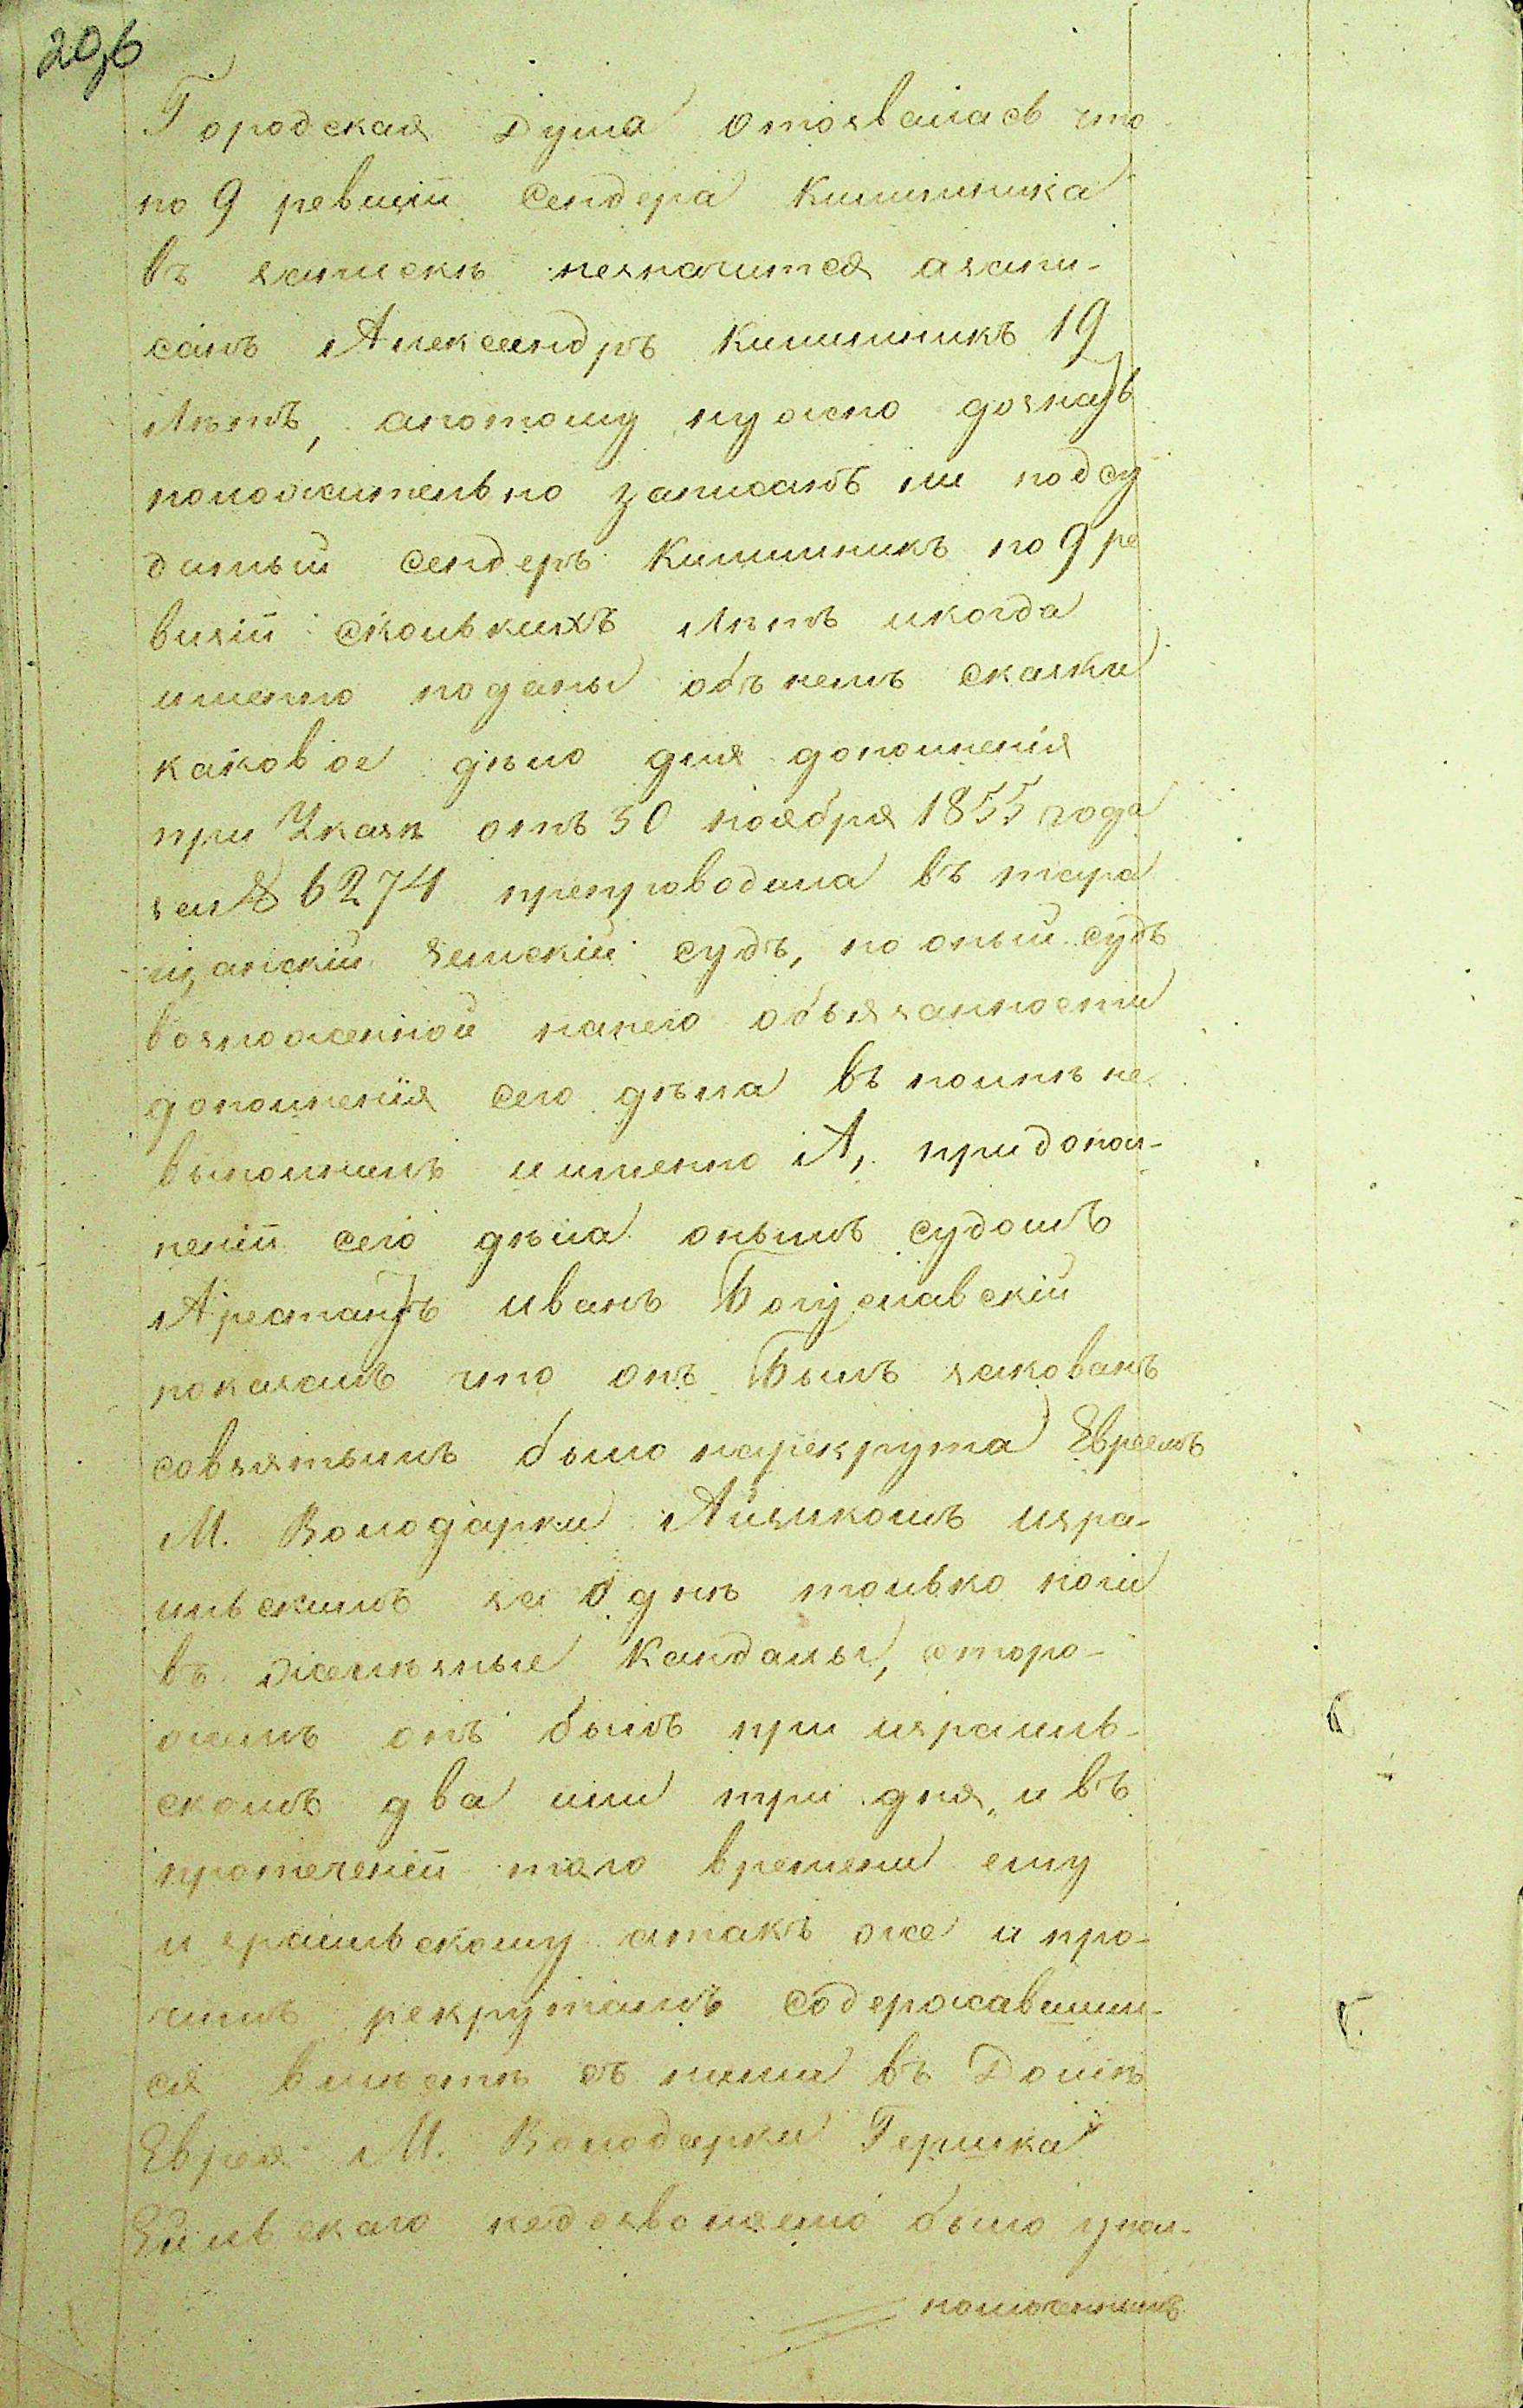 20,6
Городская Дума отозвалась что
по 9 ревизіи Сендера Кишиника
въ запискѣ незначится азапи-
санъ Александръ Кишиникъ 19
лѣтъ, апотому нужно дознать
положительно записанъ ли подсу
димый Сендеръ Кишиникъ по 9 ре
визіи сколькихъ лѣтъ икогда
именно поданы объ немъ сказки
каковое дѣло для дополненія
при Указѣ отъ 30 ноября 1855 года
за № 6274 препроводила въ тара
щанскій земскій судъ, но оный судъ
возложенной нанего объязанности
дополненія сего дѣла въ полнѣ не
выполнилъ иименно А, придопол-
неніи сего дѣла онымъ судомъ
Арестантъ иванъ Богуславскій
показалъ что онъ Былъ закованъ
совзятымъ было нарекрута Евреемъ
М. Володарки Айзикомъ изра-
ильскимъ за однѣ только ноги
въ желѣзные Кандалы, сторо-
жемъ онъ былъ при израиль-
скомъ два или три дня, и въ
протеченіи того времени ему
израильскому атакъ же и про-
чимъ рекрутамъ содержавшим-
ся вмѣстѣ съ ними въ Домѣ
Еврея М. Володарки Гершка
недозволяемо было упол-
номоченнымъ